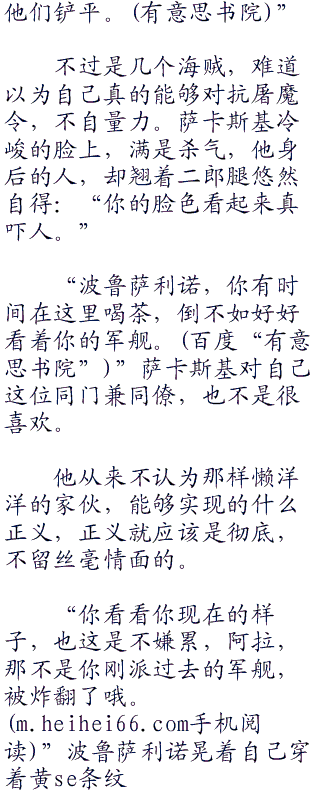 他们铲平。(有意思书院)”
不过是几个海贼，难道
以为自己真的能够对抗屠魔
令，不自量力。萨卡斯基冷
峻的脸上，满是杀气，他身
后的人，却翘着二郎腿悠然
自得：“你的脸色看起来真
吓人。”
“波鲁萨利诺，你有时
间在这里喝茶，倒不如好好
看着你的军舰。(百度“有意
思书院”)”萨卡斯基对自己
这位同门兼同僚，也不是很
喜欢。
他从来不认为那样懒洋
洋的家伙，能够实现的什么
正义，正义就应该是彻底，
不留丝毫情面的。
“你看看你现在的样
子，也这是不嫌累，阿拉，
那不是你刚派过去的军舰，
被炸翻了哦。
(m.heihei66.com手机阅
读)”波鲁萨利诺晃着自己穿
着黄se条纹